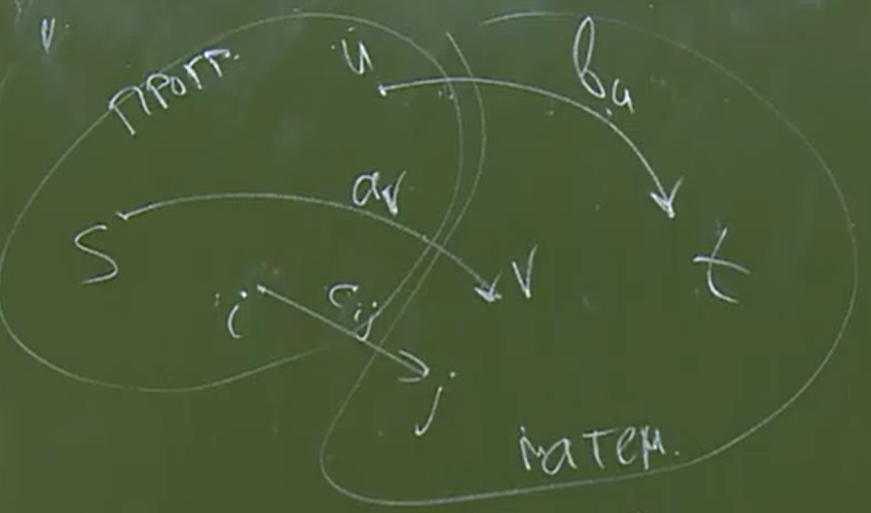 прогр.
u
bᵤ
S
aᵥ
v
t
i
cᵢⱼ
j
матем.